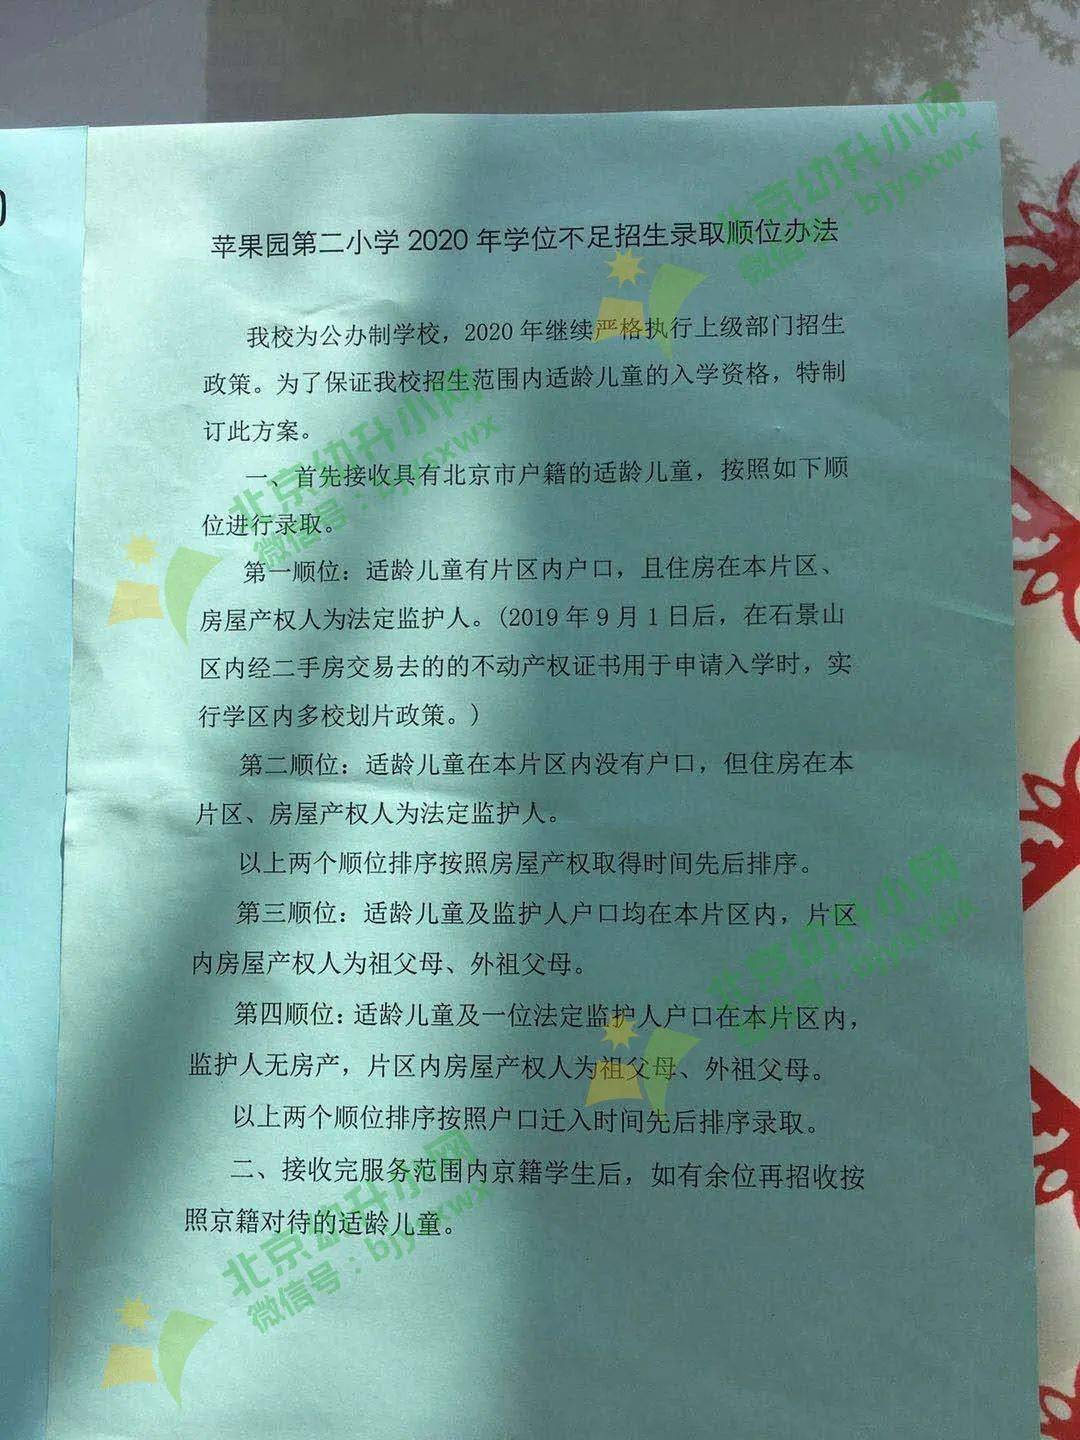 苹果园第二小学 2020 年学位不足招生录取顺位办法
我校为公办制学校，2020 年继续严格执行上级部门招生
政策。为了保证我校招生范围内适龄儿童的入学资格，特制
订此方案。
一、首先接收具有北京市户籍的适龄儿童，按照如下顺
位进行录取。
第一顺位：适龄儿童有片区内户口，且住房在本片区、
房屋产权人为法定监护人。(2019 年 9 月 1 日后，在石景山
区内经二手房交易去的的不动产权证书用于申请入学时，实
行学区内多校划片政策。)
第二顺位：适龄儿童在本片区内没有户口，但住房在本
片区、房屋产权人为法定监护人。
以上两个顺位排序按照房屋产权取得时间先后排序。
第三顺位：适龄儿童及监护人户口均在本片区内，片区
内房屋产权人为祖父母、外祖父母。
第四顺位：适龄儿童及一位法定监护人户口在本片区内，
监护人无房产，片区内房屋产权人为祖父母、外祖父母。
以上两个顺位排序按照户口迁入时间先后排序录取。
二、接收完服务范围内京籍学生后，如有余位再招收按
照京籍对待的适龄儿童。
北京幼升小网
微信号：bjysxwx
北京幼升小网
微信号：bjysxwx
北京幼升小网
微信号：bjysxwx
北京幼升小网
微信号：bjysxwx